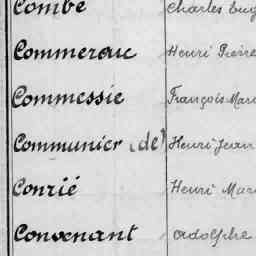 Combe Charles Eug
Commerauc Henri Pierre
Commessie François Marc
Communier (de) Henri Jean
Conrié Henri Marc
Convenant Adolphe